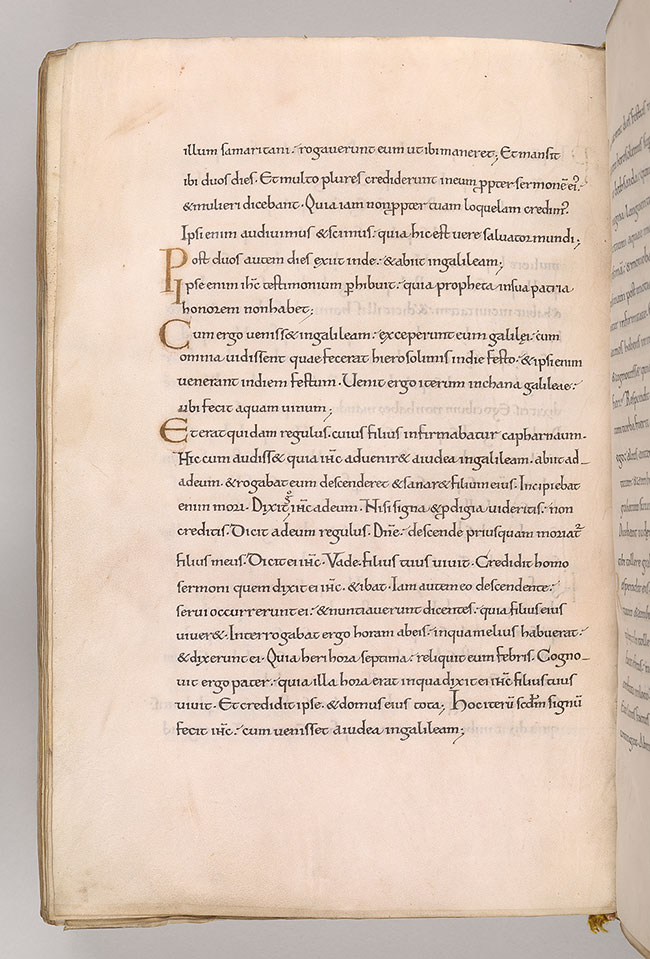 illum samaritani; rogaverunt eum ut ibi maneret; Et mansit
ibi duos dies. Et multo plures crediderunt in eum ꝓpter sermonē ei᾽.
& mulieri dicebant. Quia iam non ꝓpter tuam loquelam credim᾽?
Ipsi enim audivimus & scimus; quia hic est vere salvator mundi;
Post duos autem dies exiit inde; & abiit in galileam;
Ipse enim ihc testimonium ꝑhibuit; quia propheta in sua patria
honorem non habet;
Cum ergo veniss& in galileam; exceperunt eum galilęi; cum
omnia vidissent quae fecerat hierosolimis in die festo; & ipsi enim
venerant in diem festum. Venit ergo iterum in chana galileae;
ubi fecit aquam vinum;
Et erat quidam regulus. cuius filius infirmabatur capharnaum.
Hic cum audiss& quia ihc advenir& a iudea in galileam. abiit ad
ad eum. & rogabat eum ut descenderet & sanar& filium eius. Incipiebat
enim mori. Dixit g̊ ihc ad eum. Nisi signa & ꝓdigia videritis; non
creditis. Dicit ad eum regulus. Dn̄e; descende priusquam moriat᾽
filius meus. Dicit ei ihc. Vade. filius tuus vivit. Credidit homo
sermoni quem dixit ei ihc. & ibat. Iam autem eo descendente;
servi occurrerunt ei; & nuntiaverunt dicentes; quia filius eius
viver&. Interrogabat ergo horam ab eis; in qua melius habuerat;
& dixerunt ei. Quia heri hora septima; reliquit eum febris. Cogno-
vit ergo pater; quia illa hora erat in qua dixit ei ihc filius tuus
vivit. Et credidit ipse. & domus eius tota; Hoc iterū scdm̄ signū
fecit ihc; cum venisset a iudea in galileam;